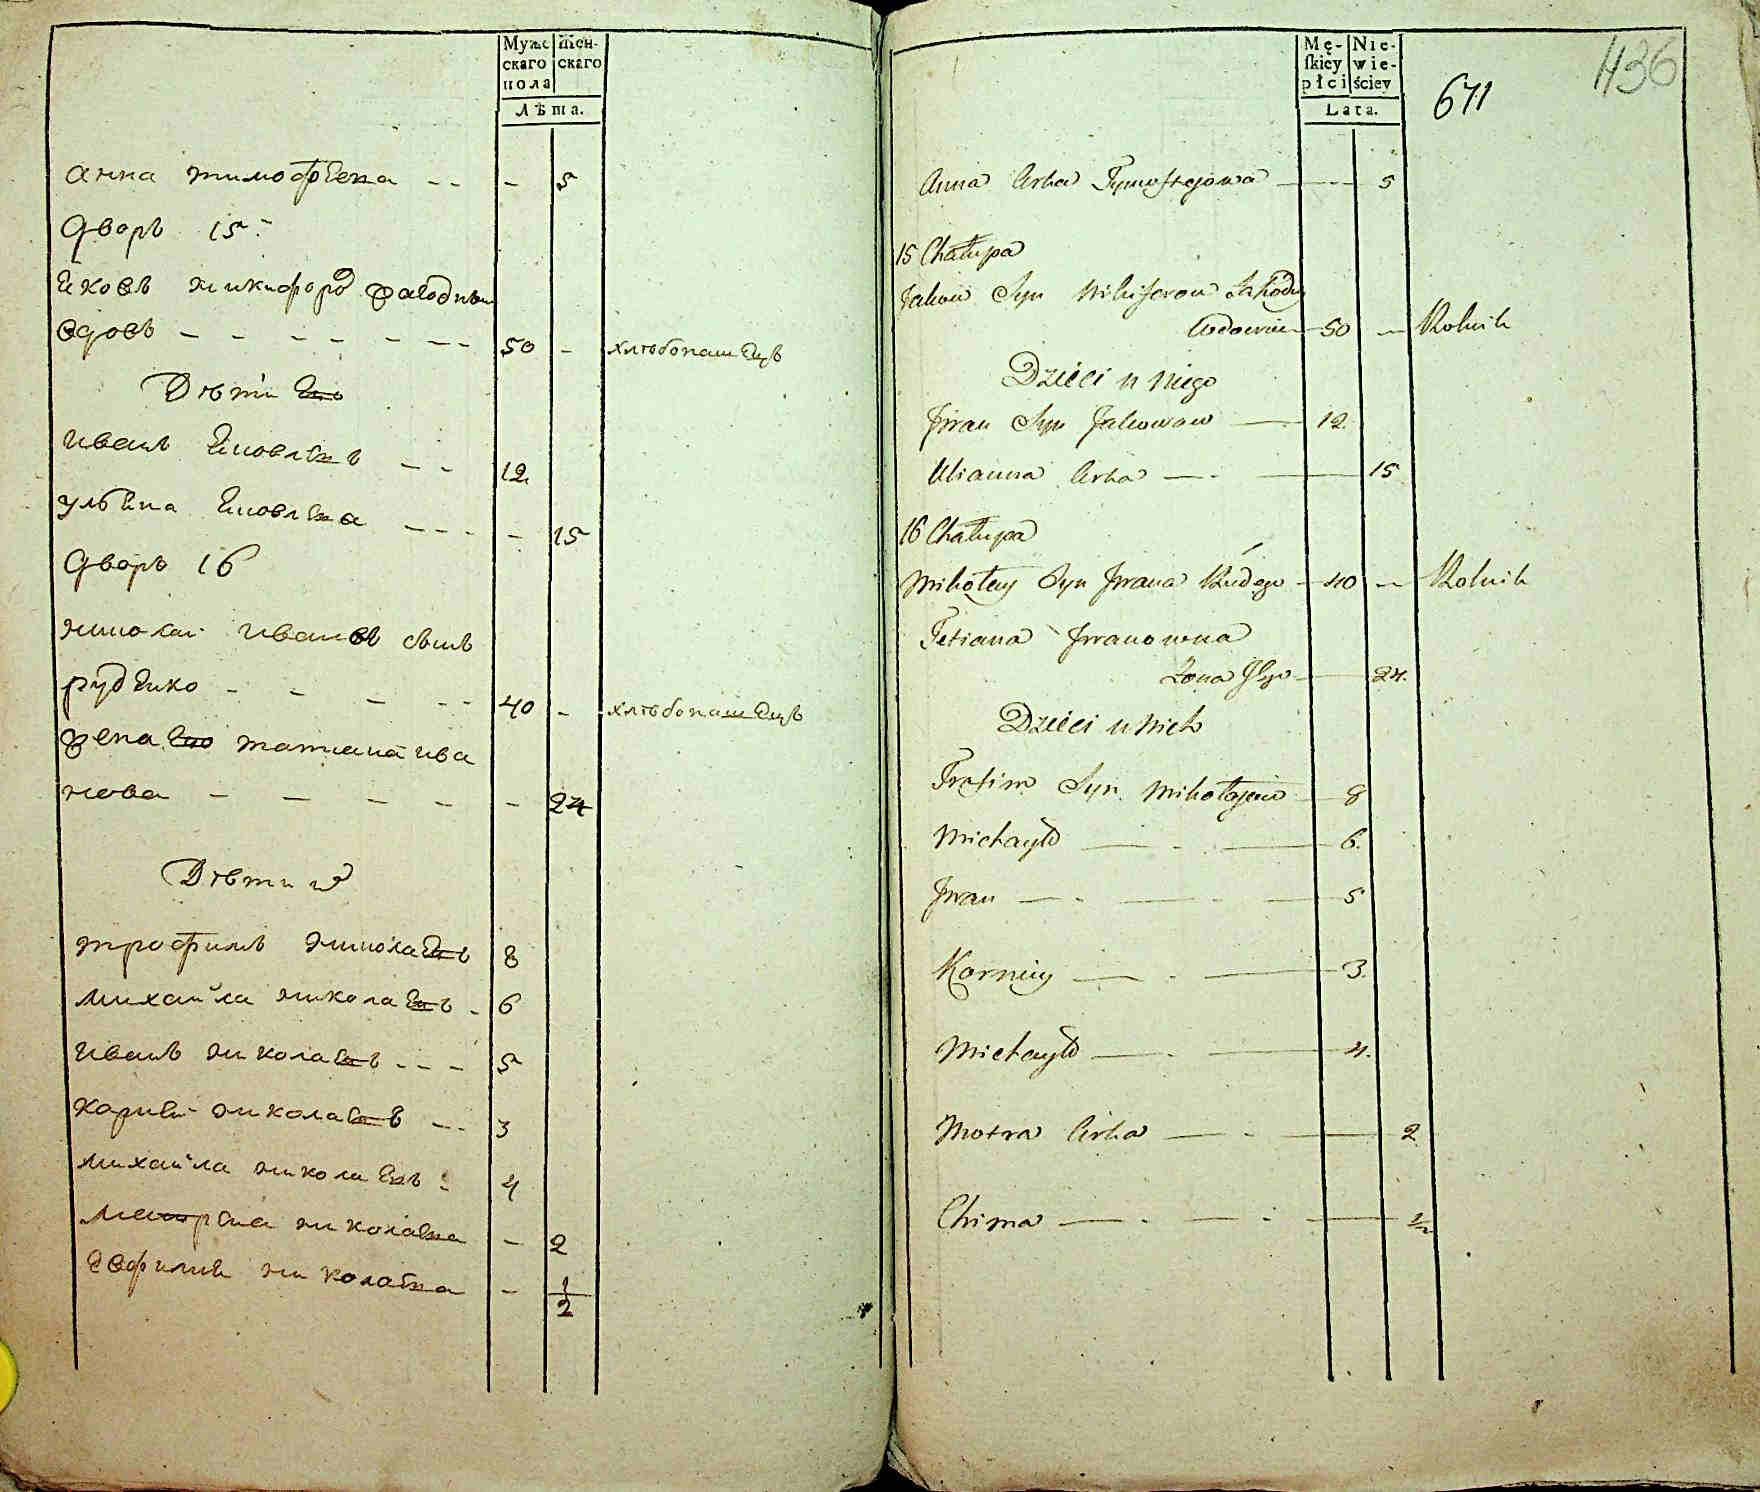 Мужескаго пола
Женскаго
Лѣта.
анна тимофѣева - - - 5
дворъ 15
яковъ никифоровъ
вдовъ - - - - - - - 50 - хлѣбопашецъ
Дѣти его
иванъ яковлевъ - - 12
ульяна яковлева - - - - 15
дворъ 16
николай ивановъ сынъ
руденко - - - - - 40 - хлѣбопашецъ
жена его татиана ива
нова - - - - - 24
Дѣти их
трофимъ николаевъ 8
михайла николаевъ - 6
иванъ николаевъ - - - 5
корней николаевъ - - 3
михайла николаевъ - 4
николаева - 2
евфимия николаева - 1/2
Męskiey płci
Niewieściey
Lata.
671
436
Anna Crka Tymofiejowa — 5
15 Chałupa
Jakow Syn Nikiforow
Wdowiec — 50 — Rolnik
Dzieci u niego
Jwan Syn Jakowow — 12.
Ulianna Crka — 15
16 Chałupa
Mikołay Syn Jwana Rudego — 40 — Rolnik
Tetiana Jwanowna
Żona Jego — 24.
Dzieci u Nich
Trofim Syn Mikołajow — 8
Michayło — 6.
Jwan — 5
Korniy — 3.
Michayło — 4.
Motra Crka — 2
Chima — 1/2